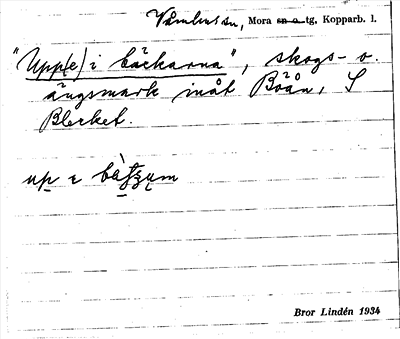 Våmhus sn, Mora sn o. tg, Kopparb. l.
"Upp(e) i bäckarna", skogs- o.
ängsmark inåt Böån, S
Blecket.
up i
Bror Lindén 1934